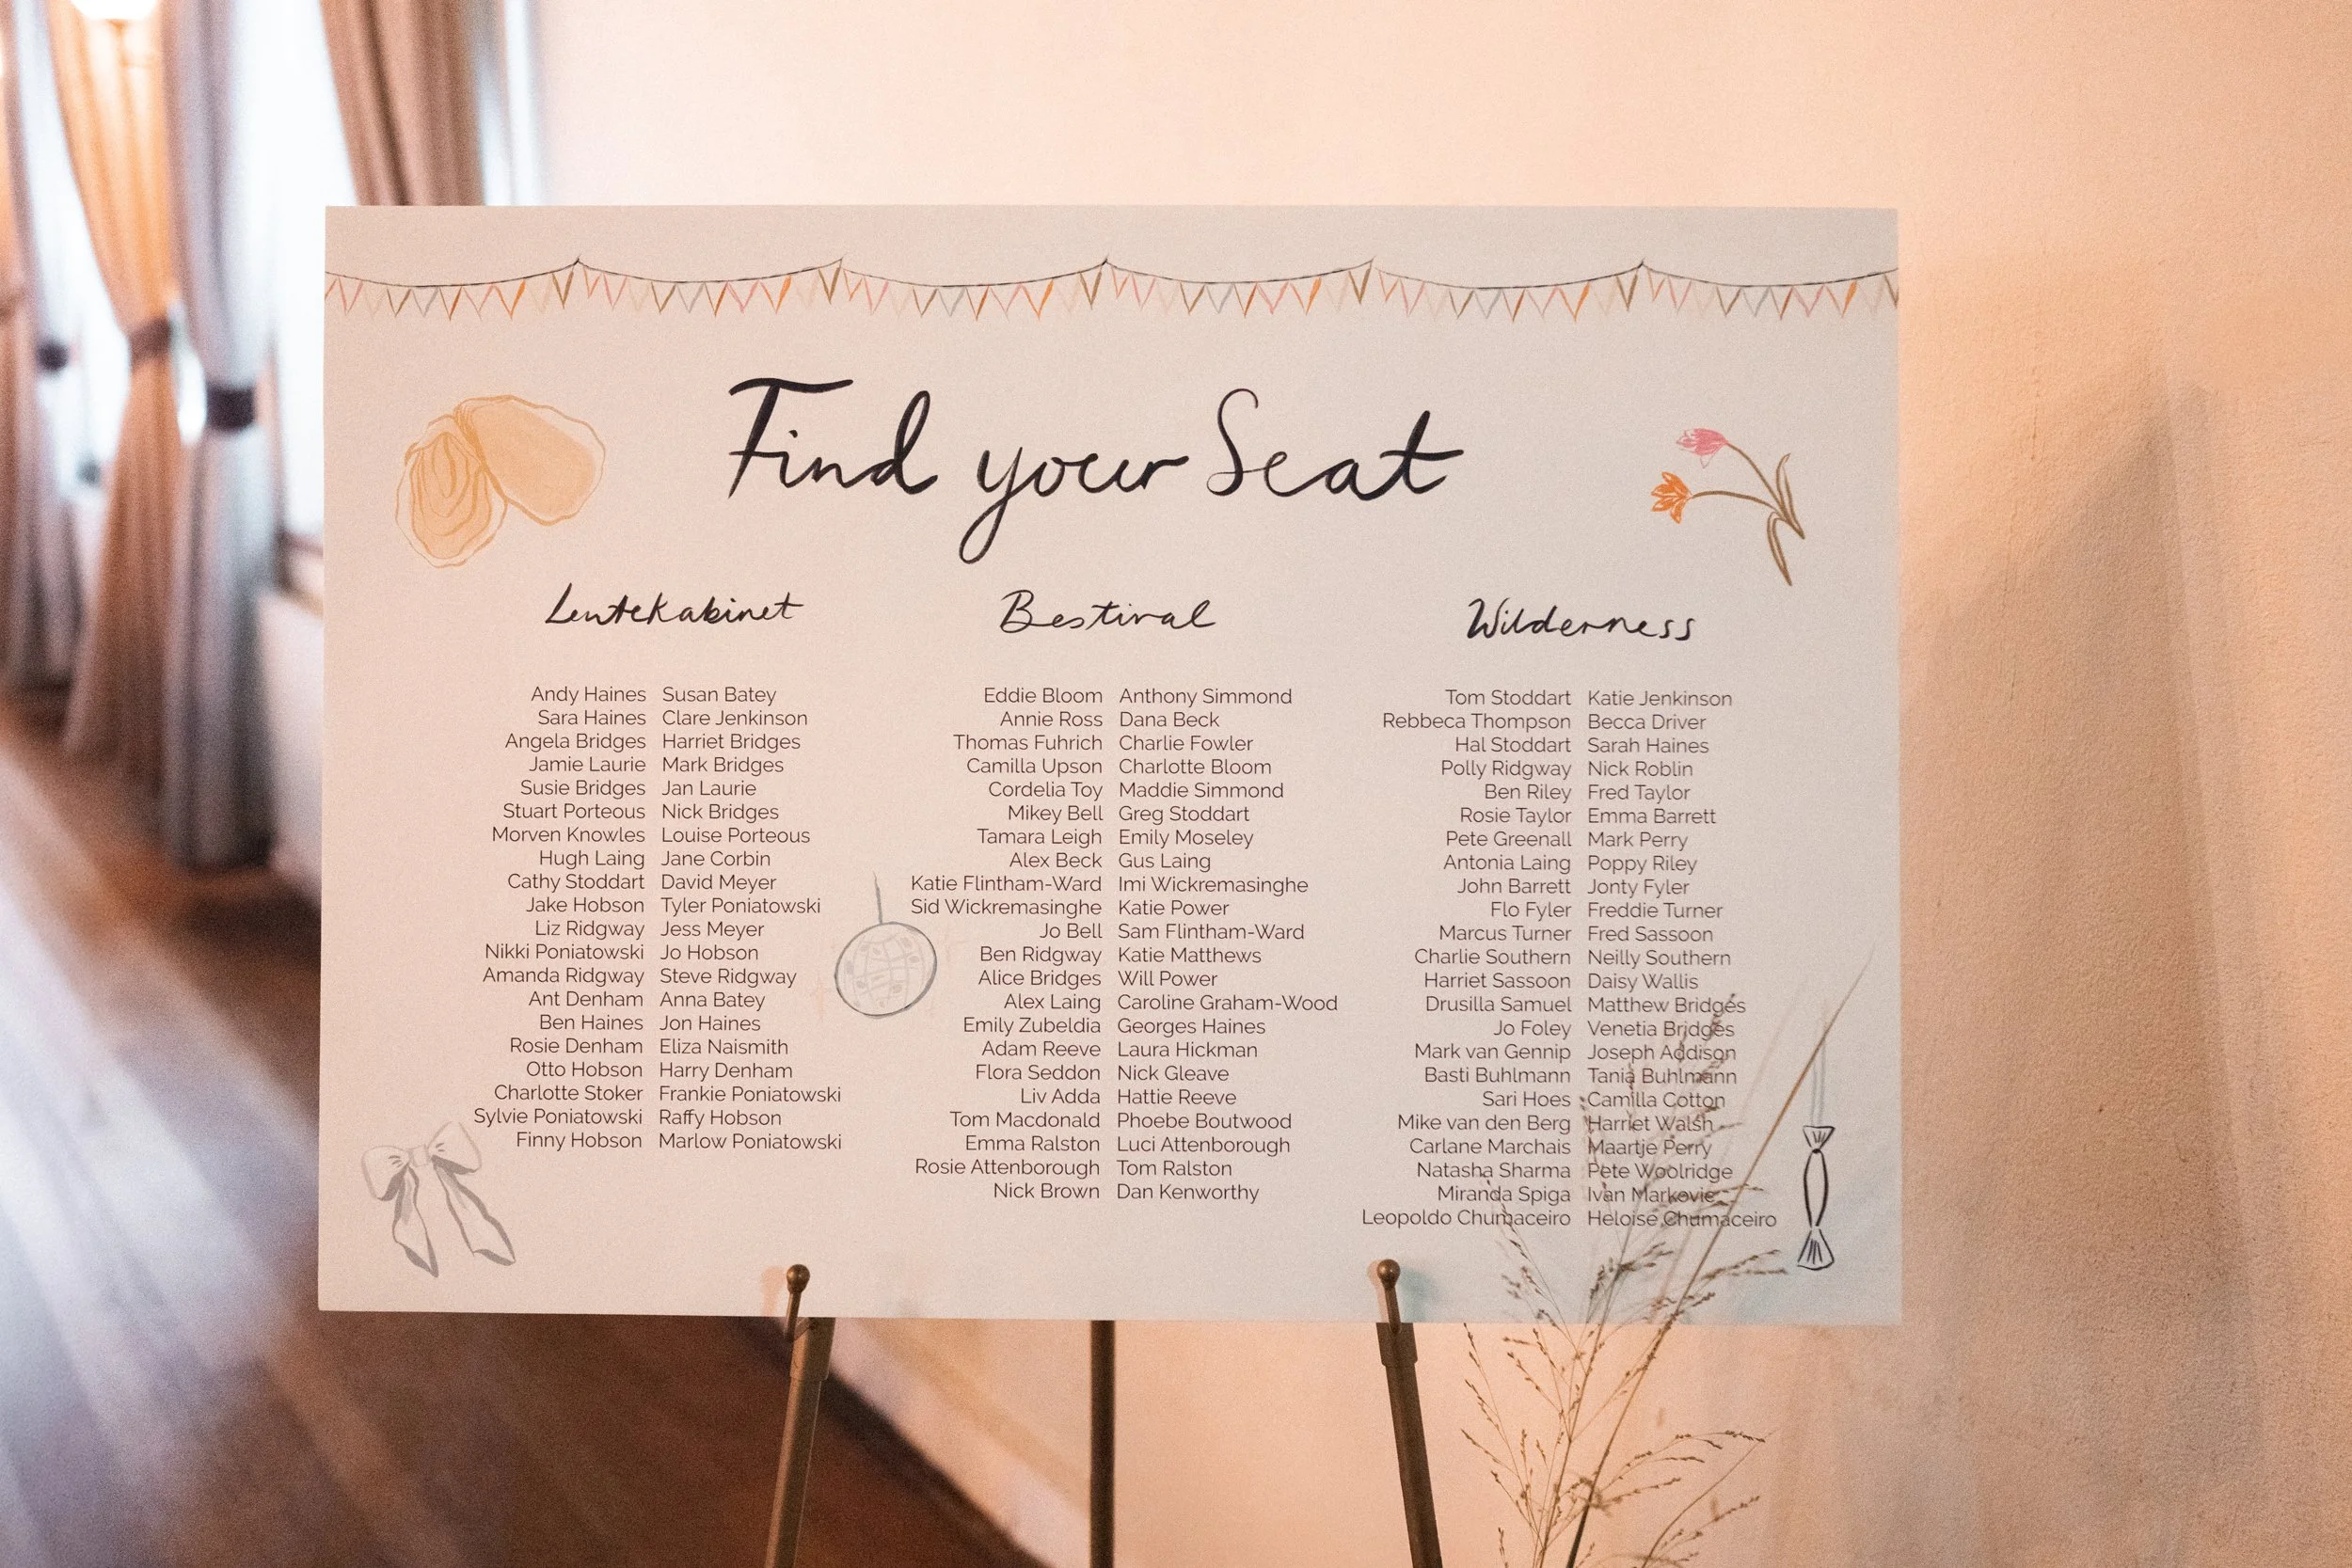 Find your Seat
Lentekabinet
Andy Haines Susan Batey
Sara Haines Clare Jenkinson
Angela Bridges Harriet Bridges
Jamie Laurie Mark Bridges
Susie Bridges Jan Laurie
Stuart Porteous Nick Bridges
Morven Knowles Louise Porteous
Hugh Laing Jane Corbin
Cathy Stoddart David Meyer
Jake Hobson Tyler Poniatowski
Liz Ridgway Jess Meyer
Nikki Poniatowski Jo Hobson
Amanda Ridgway Steve Ridgway
Ant Denham Anna Batey
Ben Haines Jon Haines
Rosie Denham Eliza Naismith
Otto Hobson Harry Denham
Charlotte Stoker Frankie Poniatowski
Sylvie Poniatowski Raffy Hobson
Finny Hobson Marlow Poniatowski
Bestival
Eddie Bloom Anthony Simmond
Annie Ross Dana Beck
Thomas Fuhrich Charlie Fowler
Camilla Upson Charlotte Bloom
Cordelia Toy Maddie Simmond
Mikey Bell Greg Stoddart
Tamara Leigh Emily Moseley
Alex Beck Gus Laing
Katie Flintham-Ward Imi Wickremasinghe
Sid Wickremasinghe Katie Power
Jo Bell Sam Flintham-Ward
Ben Ridgway Katie Matthews
Alice Bridges Will Power
Alex Laing Caroline Graham-Wood
Emily Zubeldia Georges Haines
Adam Reeve Laura Hickman
Flora Seddon Nick Gleave
Liv Adda Hattie Reeve
Tom Macdonald Phoebe Boutwood
Emma Ralston Luci Attenborough
Rosie Attenborough Tom Ralston
Nick Brown Dan Kenworthy
Wilderness
Tom Stoddart Katie Jenkinson
Rebbeca Thompson Becca Driver
Hal Stoddart Sarah Haines
Polly Ridgway Nick Roblin
Ben Riley Fred Taylor
Rosie Taylor Emma Barrett
Pete Greenall Mark Perry
Antonia Laing Poppy Riley
John Barrett Jonty Fyler
Flo Fyler Freddie Turner
Marcus Turner Fred Sassoon
Charlie Southern Neilly Southern
Harriet Sassoon Daisy Wallis
Drusilla Samuel Matthew Bridges
Jo Foley Venetia Bridges
Mark van Gennip Joseph Addison
Basti Buhlmann Tania Buhlmann
Sari Hoes Camilla Cotton
Mike van den Berg Harriet Walsh
Carlane Marchais Maartje Perry
Natasha Sharma Pete Woolridge
Miranda Spiga Ivan Markovic
Leopoldo Chumaceiro Heloise Chumaceiro